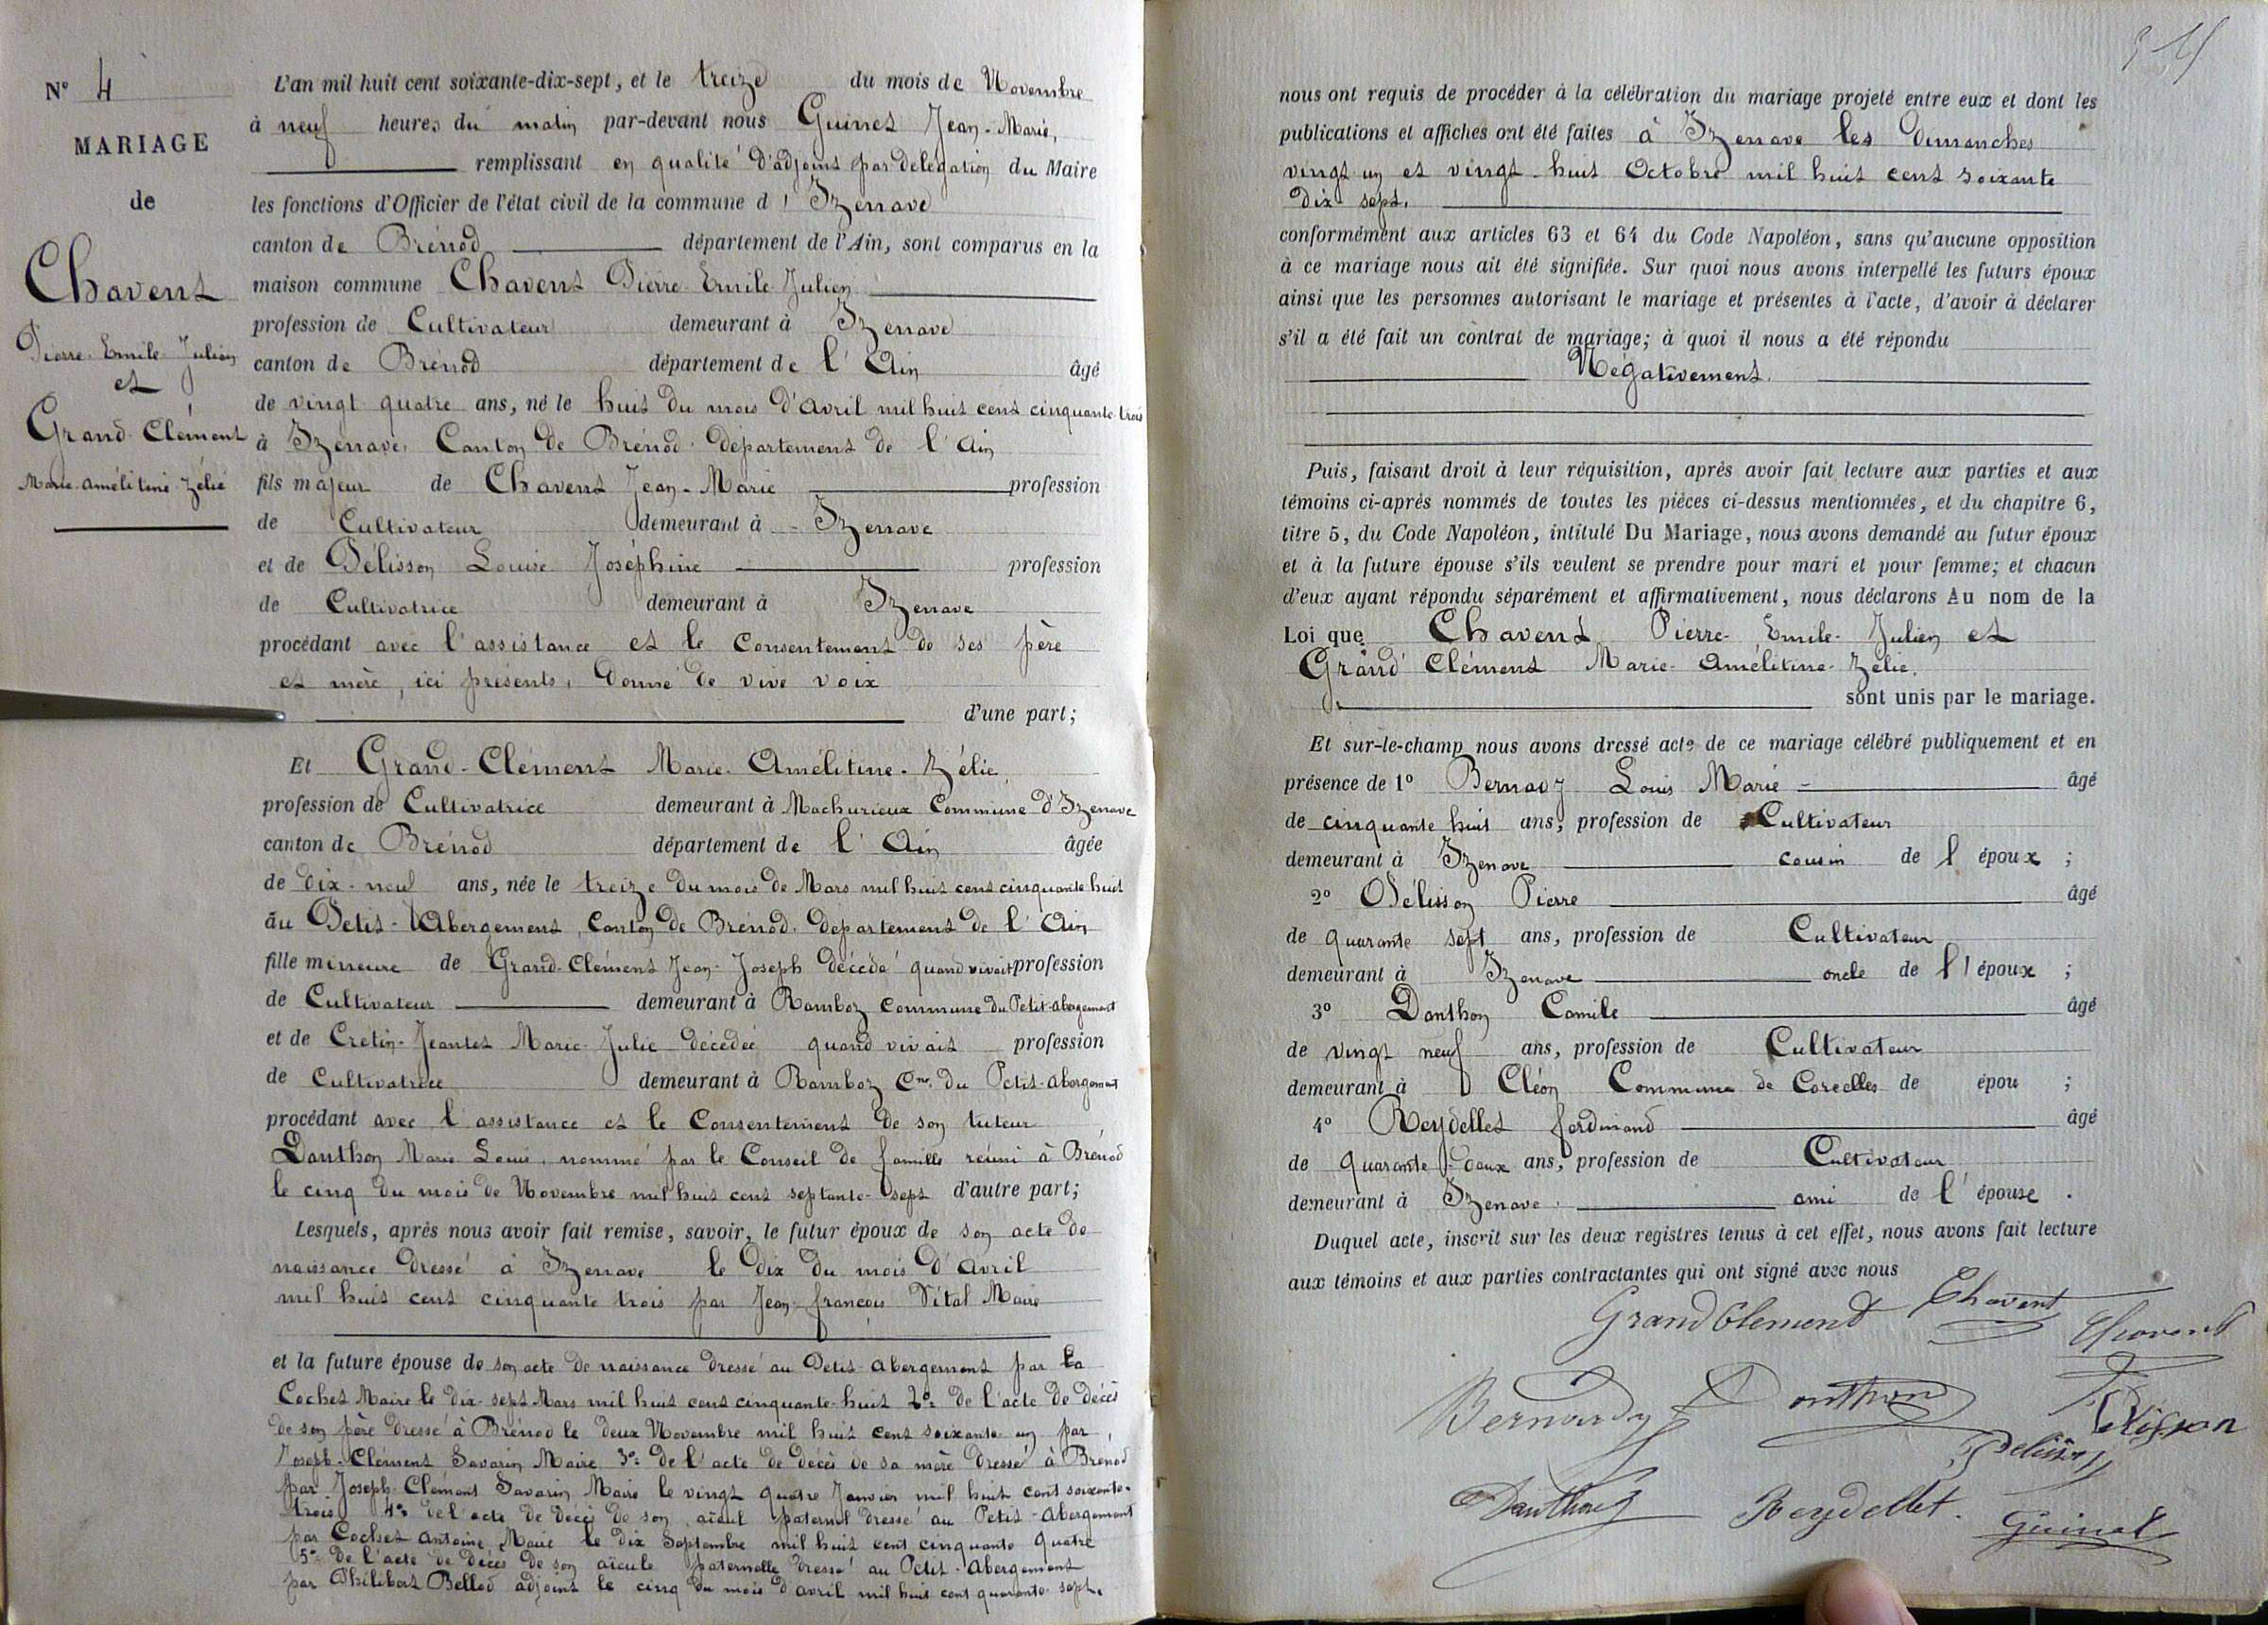 N° 4
MARIAGE
de
Chavent
Pierre Emile Julien
et
Grand-Clément
Marie Amélitine Zélie
L'an mil huit cent soixante-dix-sept, et le treize du mois de Novembre
à neuf heures du matin par-devant nous Guinet Jean-Marie,
remplissant en qualité d'adjoint par délégation du Maire
les fonctions d'Officier de l'état civil de la commune d' Izenave
canton de Brénod département de l'Ain, sont comparus en la
maison commune Chavent Pierre Emile Julien
profession de Cultivateur demeurant à Izenave
canton de Brénod département de l'Ain âgé
de vingt quatre ans, né le huit du mois d'avril mil huit cent cinquante trois
à Izenave, Canton de Brénod département de l'Ain
fils majeur de Chavent Jean-Marie profession
de Cultivateur demeurant à Izenave
et de Pélisson Louise Joséphine profession
de Cultivatrice demeurant à Izenave
procédant avec l'assistance et le consentement de ses père
et mère, ici présents, donné de vive voix
d'une part;
Et Grand-Clément Marie Amélitine Zélie
profession de Cultivatrice demeurant à Machurieux Commune d'Izenave
canton de Brénod département de l'Ain âgée
de dix-neuf ans, née le treize du mois de Mars mil huit cent cinquante huit
au Petit-Abergement, Canton de Brénod département de l'Ain
fille mineure de Grand-Clément Jean-Joseph décédé quand vivait profession
de Cultivateur demeurant à Ramboz commune du Petit-abergement
et de Cretin-Jeantet Marie Julie décédée quand vivait profession
de Cultivatrice demeurant à Ramboz Cne du Petit-Abergement
procédant avec l'assistance et le Consentement de son tuteur
Danthon Marie Louis, nommé par le Conseil de famille réuni à Brénod
le cinq du mois de Novembre mil huit cent septante-sept d'autre part;
Lesquels, après nous avoir fait remise, savoir, le futur époux de son acte de
naissance dressé à Izenave le dix du mois d'avril
mil huit cent cinquante trois par Jean-françois Vital Maire
et la future épouse de son acte de naissance dressé au Petit-abergement par
Cochet Maire le dix-sept Mars mil huit cent cinquante-huit 2° de l'acte de décès
de son père dressé à Brénod le deux Novembre mil huit cent soixante un par
Joseph-Clément Savarin Maire 3° de l'acte de décès de sa mère dressé à Brénod
par Joseph-Clément Savarin Maire le vingt quatre Janvier mil huit cent soixante-
trois 4° de l'acte de décès de son aïeul paternel dressé au Petit-Abergement
par Cochet Antoine Maire le dix Septembre mil huit cent cinquante quatre
5° de l'acte de décès de son aïeule paternelle dressé au Petit-Abergement
par Philibert Bellod adjoint le cinq du mois d'avril mil huit cent quarante-sept.
nous ont requis de procéder à la célébration du mariage projeté entre eux et dont les
publications et affiches ont été faites à Izenave les dimanches
vingt un et vingt-huit Octobre mil huit cent soixante
dix sept.
conformément aux articles 63 et 64 du Code Napoléon, sans qu'aucune opposition
à ce mariage nous ait été signifiée. Sur quoi nous avons interpellé les futurs époux
ainsi que les personnes autorisant le mariage et présentes à l'acte, d'avoir à déclarer
s'il a été fait un contrat de mariage; à quoi il nous a été répondu
Négativement.
Puis, faisant droit à leur réquisition, après avoir fait lecture aux parties et aux
témoins ci-après nommés de toutes les pièces ci-dessus mentionnées, et du chapitre 6,
titre 5, du Code Napoléon, intitulé Du Mariage, nous avons demandé au futur époux
et à la future épouse s'ils veulent se prendre pour mari et pour femme; et chacun
d'eux ayant répondu séparément et affirmativement, nous déclarons Au nom de la
Loi que Chavent Pierre-Emile-Julien et
Grand Clément Marie-Amélitine-Zélie.
sont unis par le mariage.
Et sur-le-champ nous avons dressé acte de ce mariage célébré publiquement et en
présence de 1° Bernardy Louis Marie âgé
de cinquante huit ans, profession de Cultivateur
demeurant à Izenave cousin de l époux ;
2° Pélisson Pierre âgé
de quarante sept ans, profession de Cultivateur
demeurant à Izenave oncle de l'époux ;
3° Danthon Camile âgé
de vingt neuf ans, profession de Cultivateur
demeurant à Cléon Commune de Corcelles de épou ;
4° Reydellet ferdinand âgé
de quarante-deux ans, profession de Cultivateur
demeurant à Izenave ami de l'épouse .
Duquel acte, inscrit sur les deux registres tenus à cet effet, nous avons fait lecture
aux témoins et aux parties contractantes qui ont signé avec nous
Grandclement Chavent
Chavent
Bernardy Danthon
Pélisson
Pelisson
Danthon Reydellet. Guinet